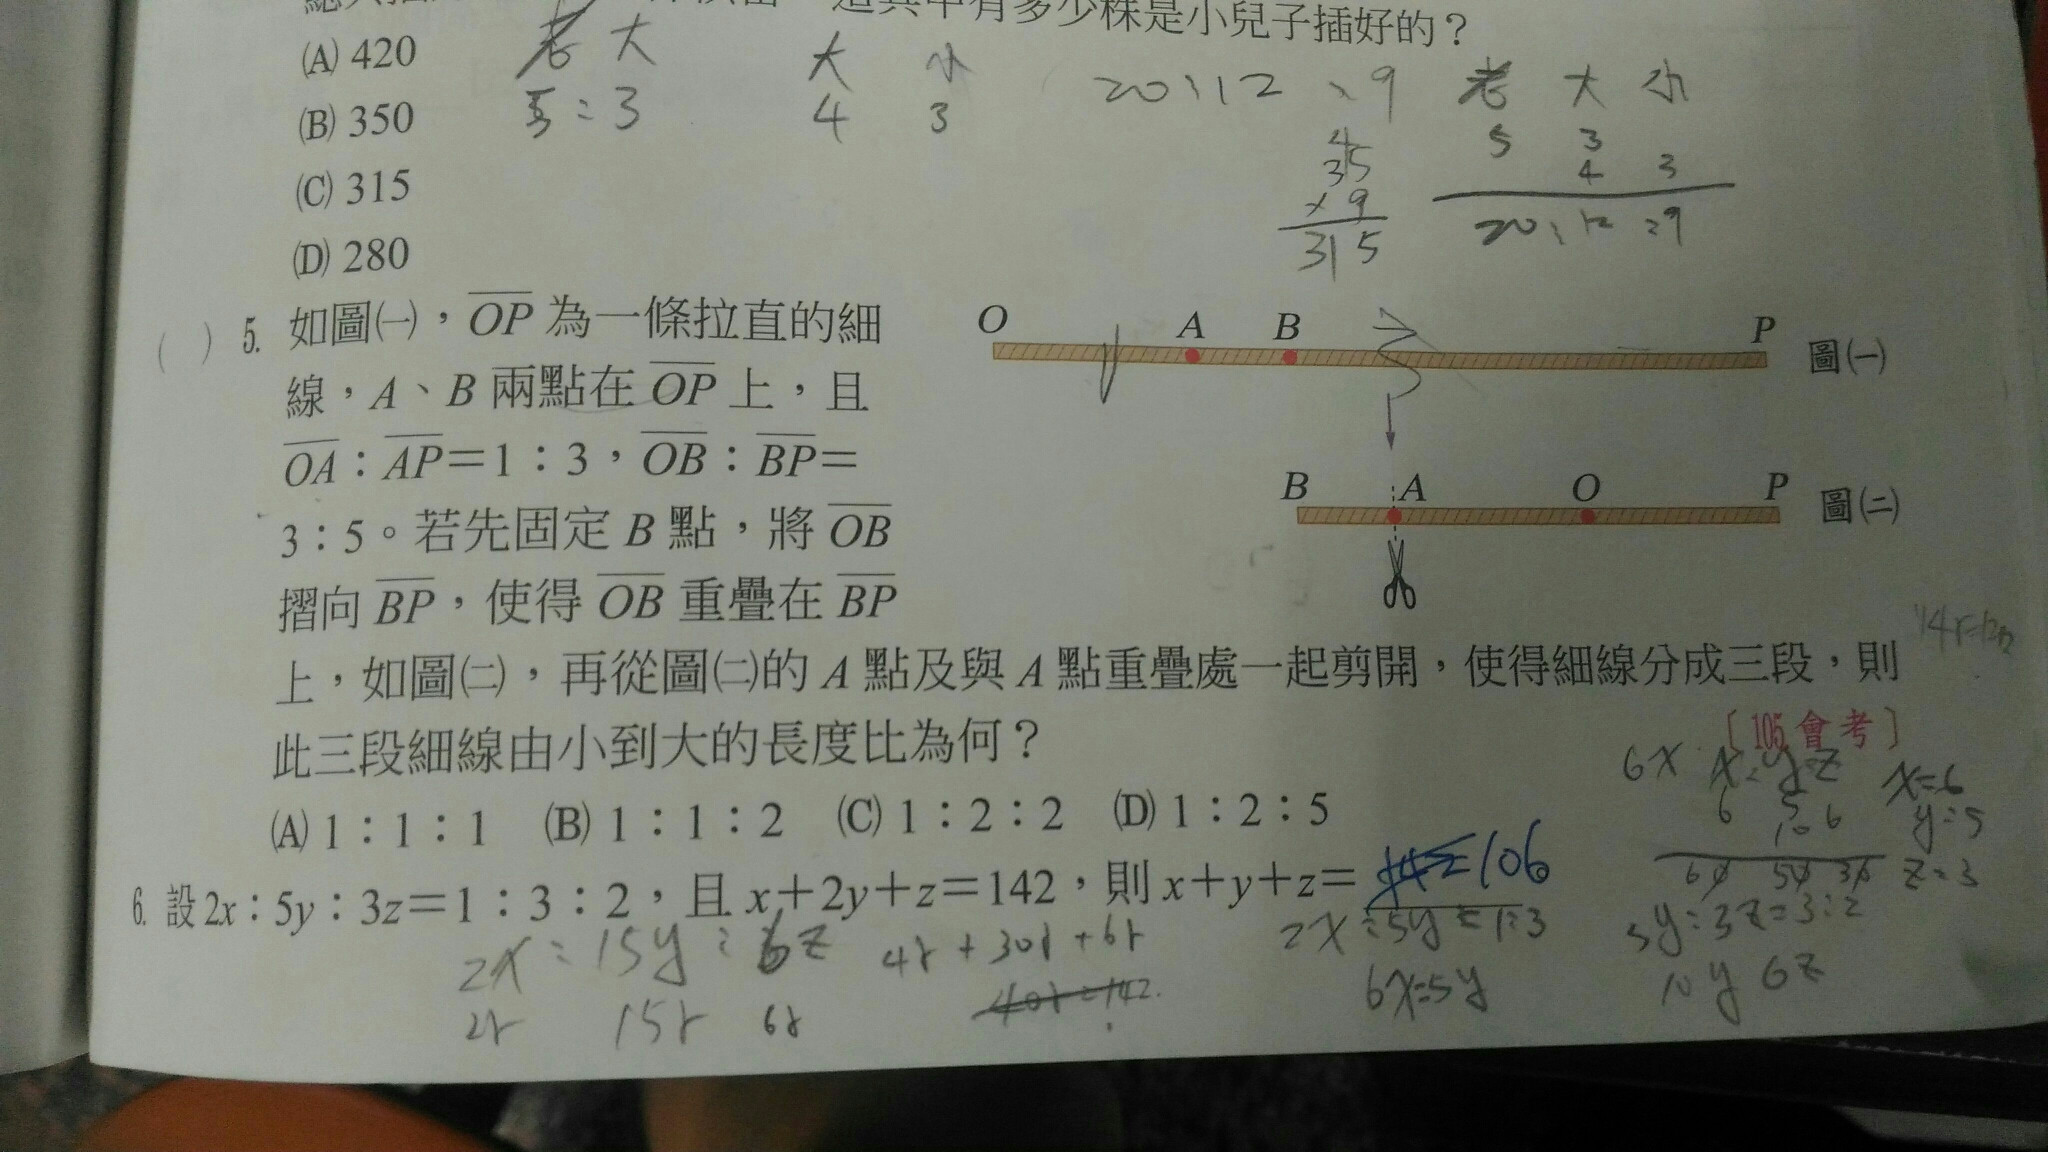 有多少株是小兒子插好的？
(A) 420
(B) 350
(C) 315
(D) 280
老 大
5：3
大 小
4 3
20：12：9
35
×9
315
老 大 小
5 3
4 3
20：12：9
( ) 5. 如圖㈠，OP 為一條拉直的細
線，A、B 兩點在 OP 上，且
OA：AP＝1：3，OB：BP＝
3：5。若先固定 B 點，將 OB
摺向 BP，使得 OB 重疊在 BP
上，如圖㈡，再從圖㈡的 A 點及與 A 點重疊處一起剪開，使得細線分成三段，則
此三段細線由小到大的長度比為何？
〔105 會考〕
O A B P 圖㈠
B A O P 圖㈡
(A) 1：1：1 (B) 1：1：2 (C) 1：2：2 (D) 1：2：5
6. 設 2x：5y：3z＝1：3：2，且 x＋2y＋z＝142，則 x＋y＋z＝106
2x：15y：6z
2r 15r 6r
4r+30r+6r
40r=142
2x：5y=1：3
6x=5y
6x x：y：z
6 5
10 6
60 50 30
x=6
y=5
z=3
5y：3z=3：2
10y 6z